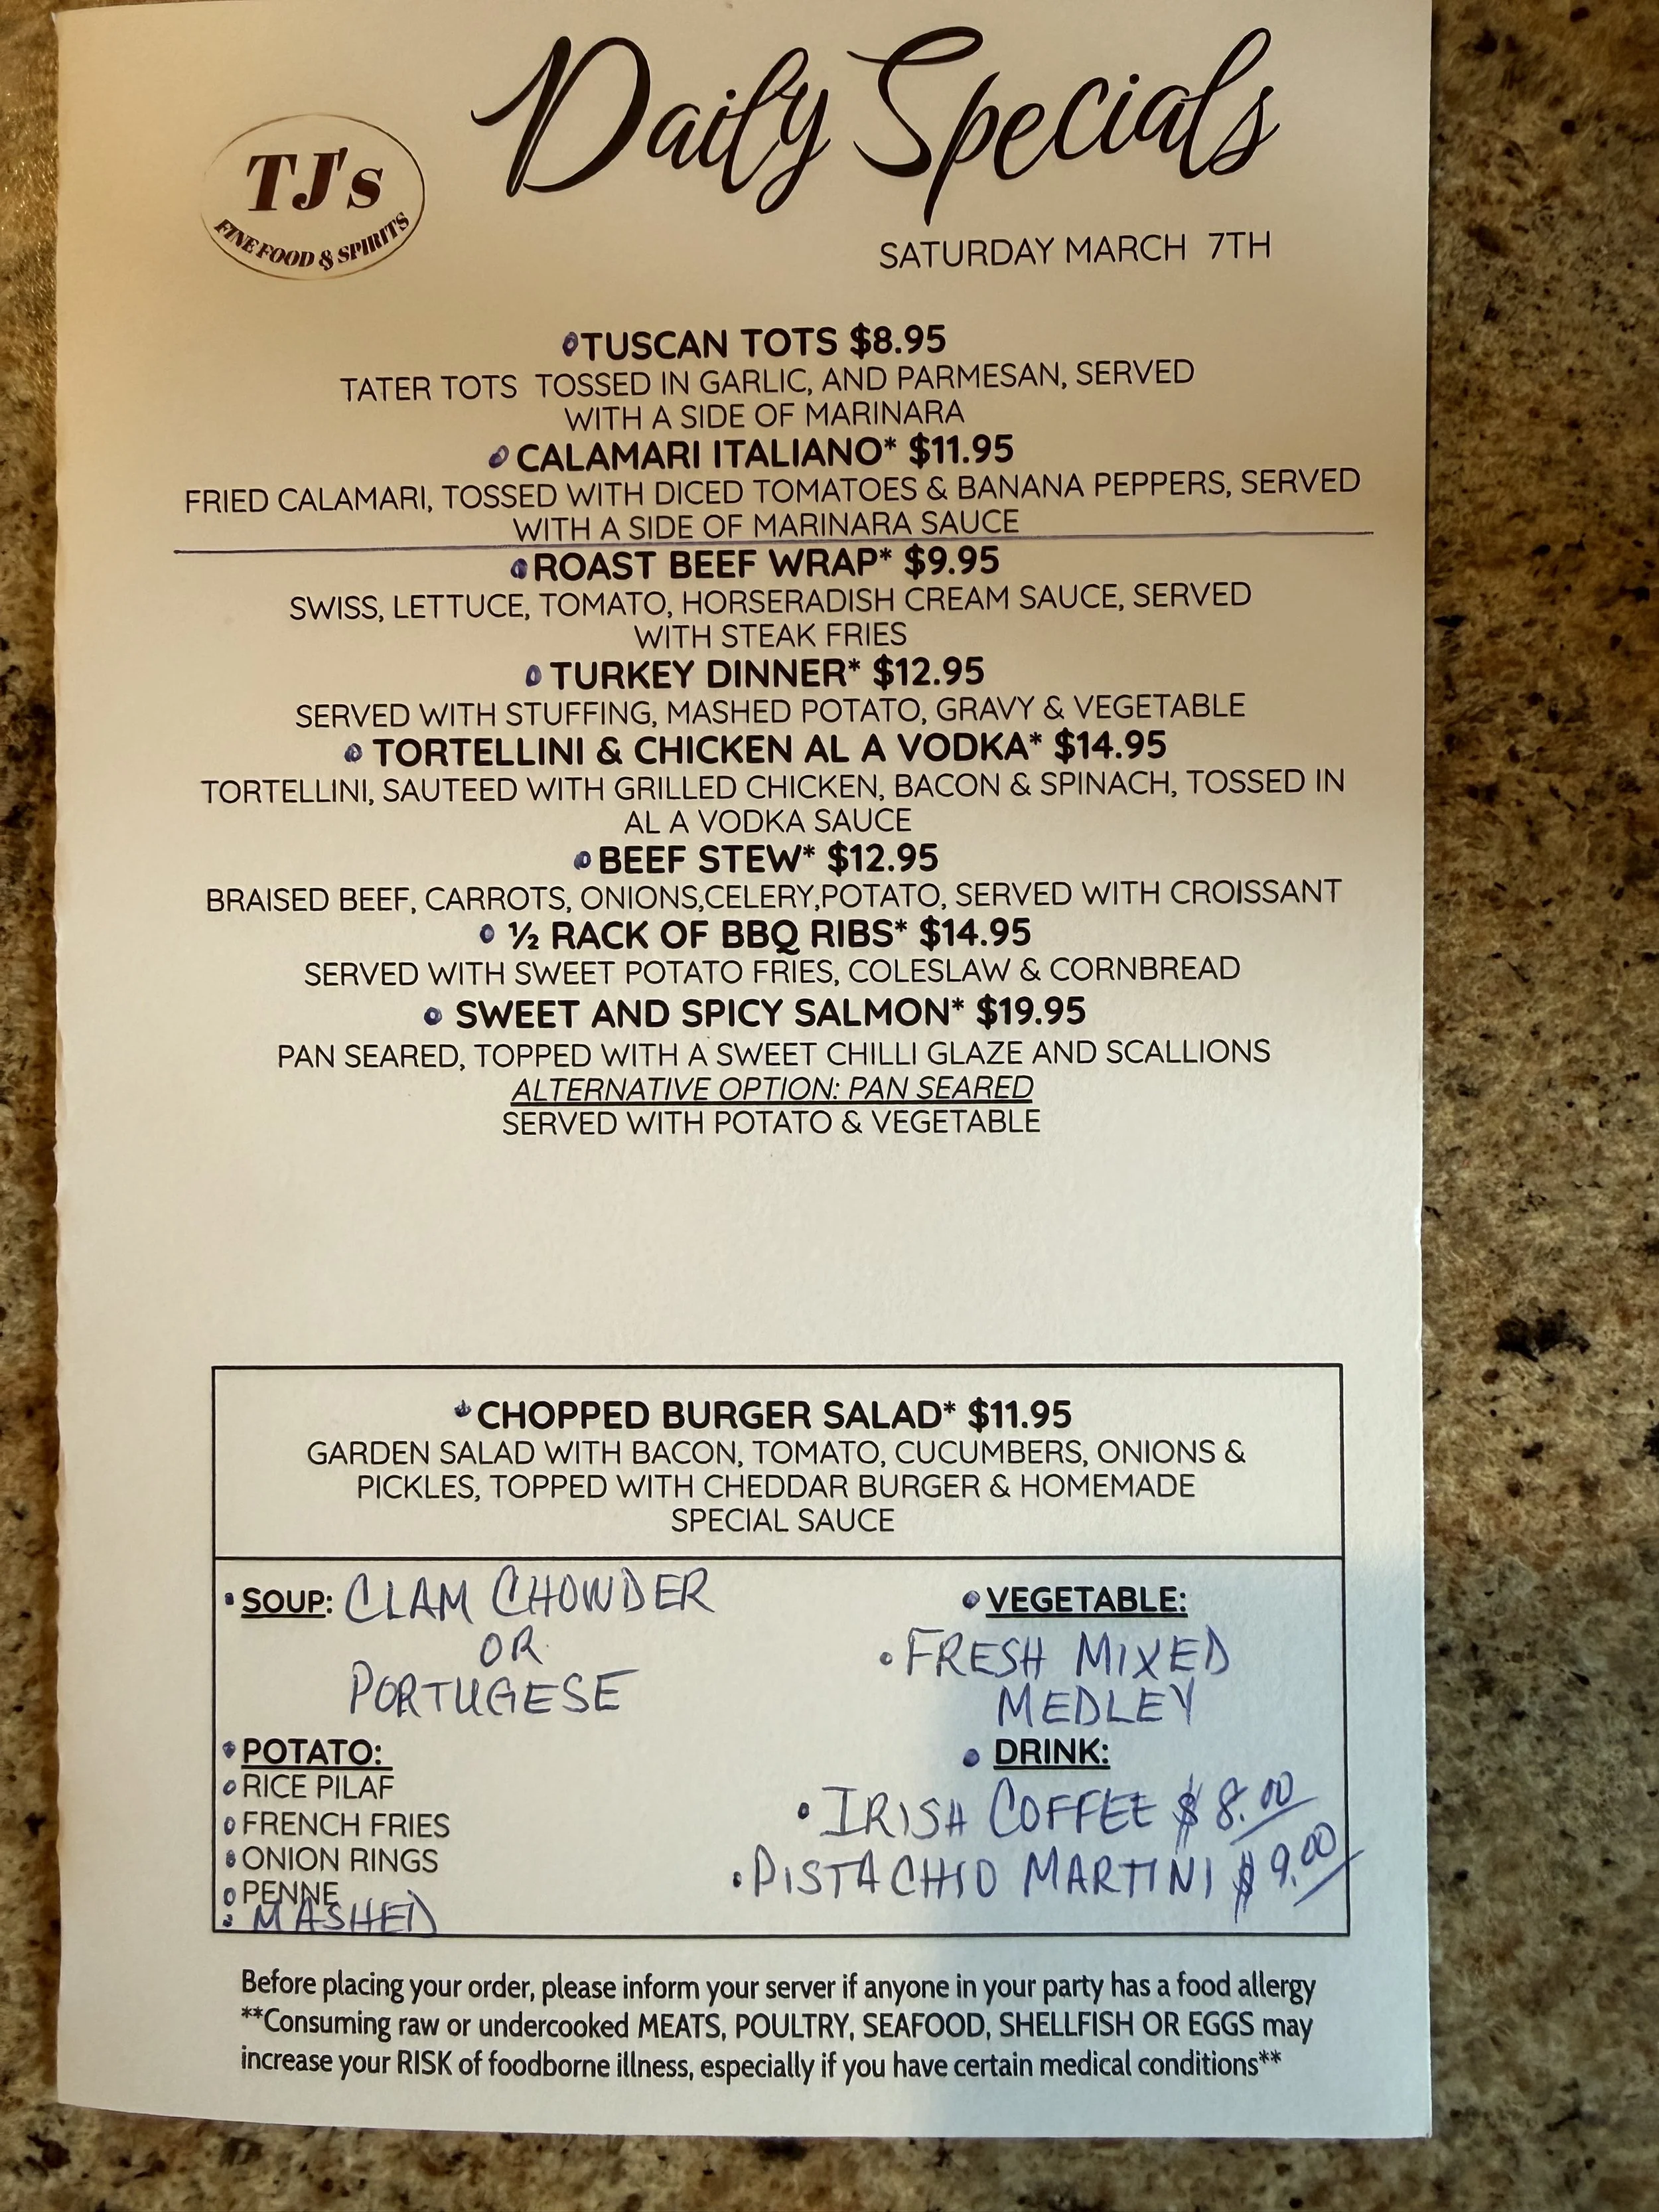 Daily Specials
TJ's
FINE FOOD & SPIRITS
SATURDAY MARCH 7TH
TUSCAN TOTS $8.95
TATER TOTS TOSSED IN GARLIC, AND PARMESAN, SERVED
WITH A SIDE OF MARINARA
CALAMARI ITALIANO* $11.95
FRIED CALAMARI, TOSSED WITH DICED TOMATOES & BANANA PEPPERS, SERVED
WITH A SIDE OF MARINARA SAUCE
ROAST BEEF WRAP* $9.95
SWISS, LETTUCE, TOMATO, HORSERADISH CREAM SAUCE, SERVED
WITH STEAK FRIES
TURKEY DINNER* $12.95
SERVED WITH STUFFING, MASHED POTATO, GRAVY & VEGETABLE
TORTELLINI & CHICKEN AL A VODKA* $14.95
TORTELLINI, SAUTEED WITH GRILLED CHICKEN, BACON & SPINACH, TOSSED IN
AL A VODKA SAUCE
BEEF STEW* $12.95
BRAISED BEEF, CARROTS, ONIONS,CELERY,POTATO, SERVED WITH CROISSANT
½ RACK OF BBQ RIBS* $14.95
SERVED WITH SWEET POTATO FRIES, COLESLAW & CORNBREAD
SWEET AND SPICY SALMON* $19.95
PAN SEARED, TOPPED WITH A SWEET CHILLI GLAZE AND SCALLIONS
ALTERNATIVE OPTION: PAN SEARED
SERVED WITH POTATO & VEGETABLE
CHOPPED BURGER SALAD* $11.95
GARDEN SALAD WITH BACON, TOMATO, CUCUMBERS, ONIONS &
PICKLES, TOPPED WITH CHEDDAR BURGER & HOMEMADE
SPECIAL SAUCE
SOUP: CLAM CHOWDER
OR
PORTUGESE
POTATO:
RICE PILAF
FRENCH FRIES
ONION RINGS
PENNE
MASHED
VEGETABLE:
FRESH MIXED
MEDLEY
DRINK:
IRISH COFFEE $8.00
PISTACHIO MARTINI $9.00
Before placing your order, please inform your server if anyone in your party has a food allergy
**Consuming raw or undercooked MEATS, POULTRY, SEAFOOD, SHELLFISH OR EGGS may
increase your RISK of foodborne illness, especially if you have certain medical conditions**